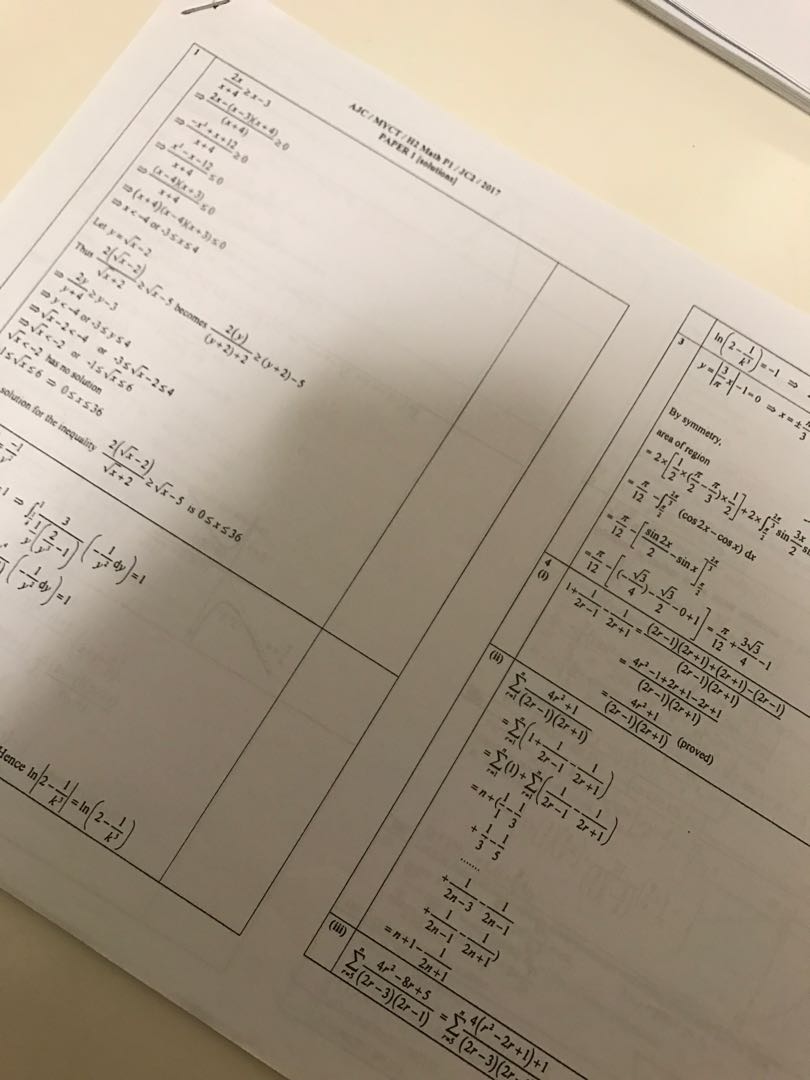 AJC / MYCT / H2 Math P1 / JC2 / 2017
PAPER 1 [solutions]
1
2x/(x+4) ≥ x-3
⇒ (2x-(x-3)(x+4))/(x+4) ≥ 0
⇒ (-x²+x+12)/(x+4) ≥ 0
⇒ (x²-x-12)/(x+4) ≤ 0
⇒ ((x-4)(x+3))/(x+4) ≤ 0
⇒ (x+4)(x-4)(x+3) ≤ 0
⇒ x < -4 or -3 ≤ x ≤ 4
Let y = √x - 2
Thus 2(√x-2)/(√x+2) ≥ √x-5 becomes 2(y)/((y+2)+2) ≥ (y+2)-5
⇒ 2y/(y+4) ≥ y-3
⇒ y < -4 or -3 ≤ y ≤ 4
⇒ √x-2 < -4 or -3 ≤ √x-2 ≤ 4
⇒ √x < -2 or -1 ≤ √x ≤ 6
√x < -2 has no solution
-1 ≤ √x ≤ 6 ⇒ 0 ≤ x ≤ 36
solution for the inequality 2(√x-2)/(√x+2) ≥ √x-5 is 0 ≤ x ≤ 36
= -1/y²
(-1/y² dy) = 1
(-1/y² dy) = 1
Hence ln|2-1/k³| = ln(2-1/k³)
ln(2-1/k³) = -1 ⇒
3
y = |3/π x| - 1 = 0 ⇒ x = ±π/3
By symmetry,
area of region
= 2×[1/2×(π/2-π/3)×1/2] + 2×∫ sin 3x/2
= π/12 - ∫ (cos 2x - cos x) dx
= π/12 - [sin 2x/2 - sin x]
= π/12 - [(-√3/4) - √3/2 - 0 + 1] = π/12 + 3√3/4 - 1
4
(i)
1 + 1/(2r-1) - 1/(2r+1) = ((2r-1)(2r+1)+(2r+1)-(2r-1))/((2r-1)(2r+1))
= (4r²-1+2r+1-2r+1)/((2r-1)(2r+1))
= (4r²+1)/((2r-1)(2r+1)) (proved)
(ii)
∑_{r=1}^{n} (4r²+1)/((2r-1)(2r+1))
= ∑_{r=1}^{n} (1 + 1/(2r-1) - 1/(2r+1))
= ∑_{r=1}^{n} (1) + ∑_{r=1}^{n} (1/(2r-1) - 1/(2r+1))
= n + (1/1 - 1/3
+ 1/3 - 1/5
.......
+ 1/(2n-3) - 1/(2n-1)
+ 1/(2n-1) - 1/(2n+1))
= n + 1 - 1/(2n+1)
(iii)
∑_{r=5}^{n} (4r²-8r+5)/((2r-3)(2r-1)) = ∑_{r=5}^{n} (4(r²-2r+1)+1)/((2r-3)(2r-